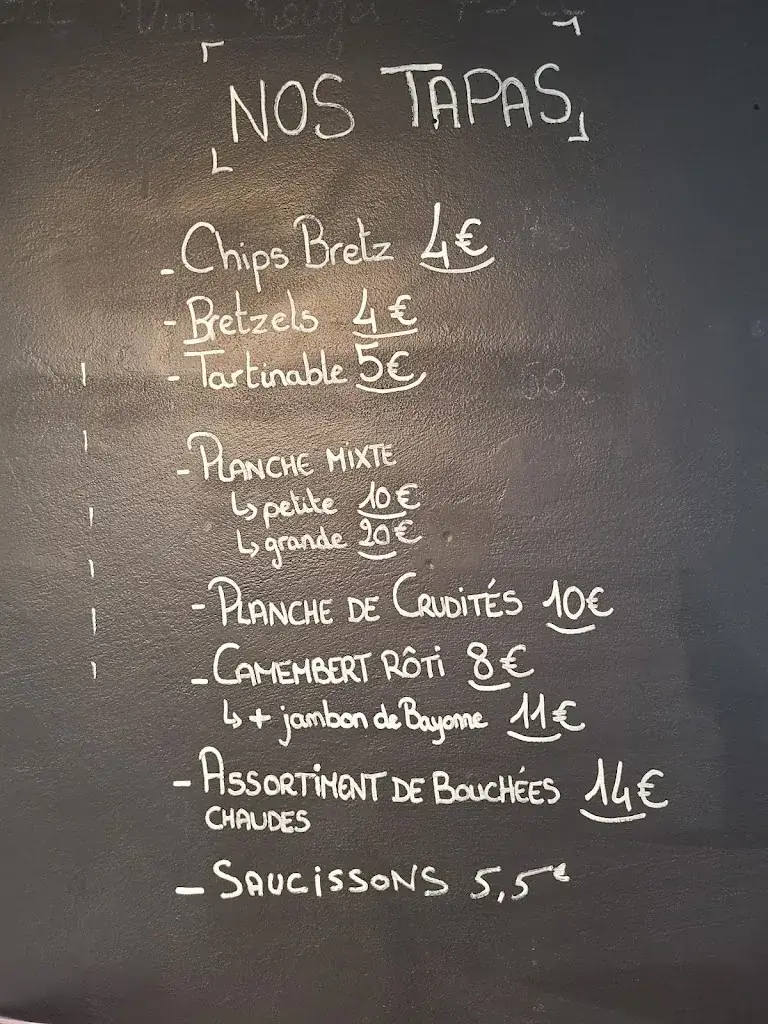 Vins Rouges
NOS TAPAS
- Chips Bretz 4€
- Bretzels 4€
- Tartinable 5€
- PLANCHE MIXTE
↳ petite 10€
↳ grande 20€
- PLANCHE DE CRUDITÉS 10€
- CAMEMBERT RÔTI 8€
↳ + jambon de Bayonne 11€
- ASSORTIMENT DE BOUCHÉES 14€
CHAUDES
- SAUCISSONS 5,5€